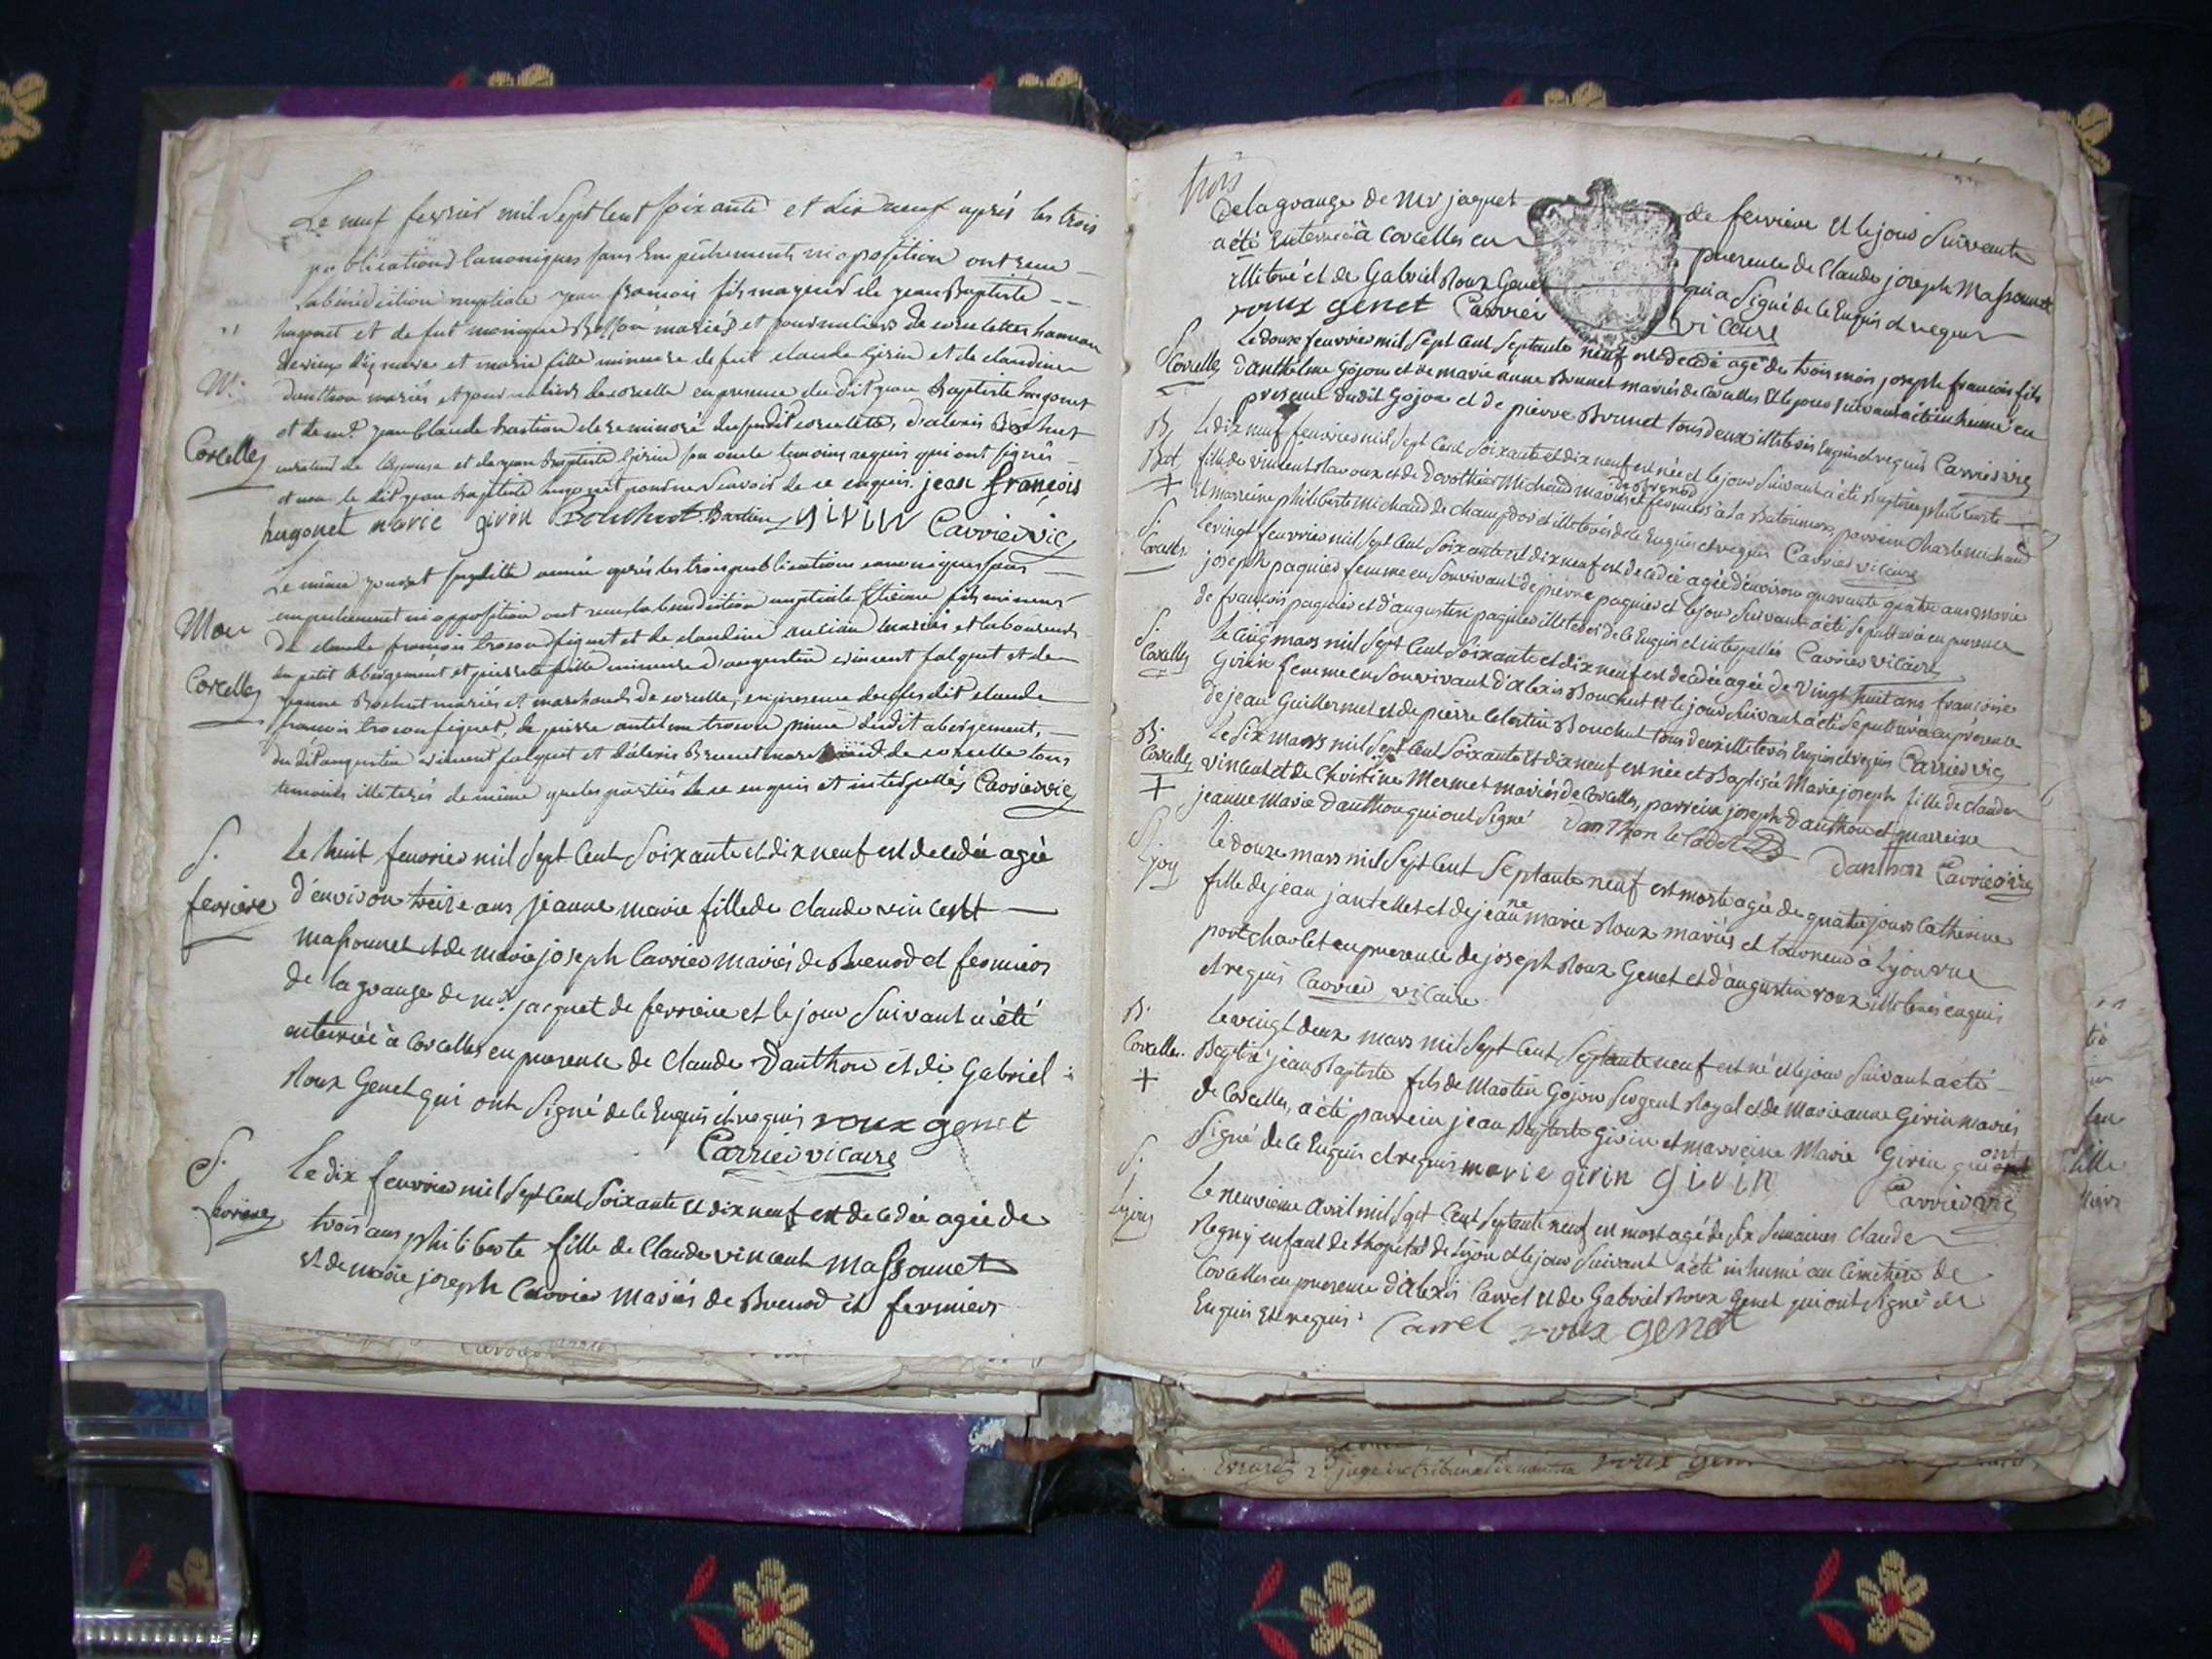 Le neuf fevrier mil Sept Cent Soixante et dix neuf aprés les trois
publications Canoniques sans Empéchements ni oposition ont recu
la bénédiction nuptiale jean francois fils majeur de jean Baptiste
hugonet et de fut monique mariés et journaliers de hameau
et marie fille mineure de fut claude Girin et de claudine
danthon mariés et journaliers de corcelle en presence du dit jean Baptiste hugonet
M.
et de mr. jean Claude bastian clerc minoré du susdit
Corcelles
de l'epouse et de jean Baptiste Girin son oncle temoins requis qui ont signés
et non le dit jean Baptiste hugonet pour ne Scavoir de ce enquis. jean françois
hugonet marie girin Bouchut Bastian girin Carrier vic
Le même jour et susditte année aprés les trois publications canoniques sans
Mar
empechement ni opposition ont recu la benediction nuptiale Etienne fils mineur
de claude francois et de claudine mariés et laboureurs
du petit Abergement et fille mineure d'augustin vincent falquet et de
Corcelles
jeanne Bochut mariés et marchands de corcelle, en presence du susdit claude
francois, de pierre antelme du dit abergement,
du dit augustin vincent falquet et d'alexis Brunet de corcelle tous
temoins illeterés de même que les parties de ce enquis et interpellés Carrier vic
S.
ferriere
Le huit feuvrier mil Sept Cent Soixante et dix neuf est decedée agée
d'environ treize ans jeanne marie fille de Claude vincent
massonnet et de marie joseph Carrier mariés de Brenod et fermiers
de la grange de mr. jacquet de ferriere et le jour Suivant a été
enterrée à Corcelles en presence de Claude Danthon et de Gabriel
Roux Genet qui ont Signé de ce Enquis et requis roux genet
Carrier vicaire
S.
Le dix feuvrier mil Sept Cent Soixante et dix neuf est decedée agée de
trois ans philiberte fille de Claude vincent Massonnet
et de marie joseph Carrier mariés de Brenod et fermiers
trois
de la grange de Mr jaquet de ferriere et le jour Suivant
a été Enterrée à Corcelles en presence de Claude joseph Massonnet
illiteré et de Gabriel Roux Genet qui a Signé de ce Enquis et requis
roux genet Carrier vicaire
S.
Corcelles
Le douze feuvrier mil Sept Cent Septante neuf est decedé agé de trois mois joseph francois fils
d'anthelme Gojon et de marie anne Brunet mariés de Corcelles et le jour suivant a été inhumé en
presence dudit Gojon et de pierre Brunet tous deux illiterés Enquis et requis Carrier vic
B.
Bat
+
Le dix neuf feuvrier mil Sept Cent Soixante et dix neuf est née et le jour Suivant a été Baptisée philiberte
fille de vincent Ravoux et de Dorothée Michaud mariés de Brenod et fermiers à la Batonnere, parrein Charle michaud
et marreine philiberte michaud de champdor et illiterés de ce Enquis et requis Carrier vicaire
S.
Corcelles
Le vingt feuvrier mil Sept Cent Soixante et dix neuf est decedée agée d'environ quarante quatre ans marie
joseph paquier femme en Son vivant de pierre paquier et le jour Suivant a été Sepulturée en presence
de francois paquier et d'augustin paquier illiterés de ce Enquis et interpellés Carrier vicaire
S.
Corcelles
Le cinq mars mil Sept Cent Soixante et dix neuf est decedée agée de vingt huit ans francoise
Girin femme en Son vivant d'Alexis Bouchut et le jour Suivant a été Sepulturée en présence
de jean Guillermet et de pierre Celestin Bouchut tous deux illiterés Enquis et requis Carrier vic
B.
Corcelles
+
Le Six mars mil Sept Cent Soixante et dix neuf est née et Baptisée Marie joseph fille de claude
vincent et de Christine Mermet mariés de Corcelles, parrein joseph Danthon et marreine
jeanne Marie Danthon qui ont Signé Danthon le Cadet Danthon Carrier vic
S.
Le douze mars mil Sept Cent Septante neuf est morte agée de quatre jours Catherine
fille de jean jantellet et de jeanne marie Roux mariés et tourneur à Lyon rue
port charlet en presence de joseph Roux Genet et d'augustin roux illiterés enquis
et requis Carrier vicaire
B.
Corcelles.
+
Le vingt deux mars mil Sept Cent Septante neuf est né et le jour Suivant a été
Baptisé jean Baptiste fils de Martin Gojon Sergent Royal et de Marie anne Girin mariés
de Corcelles, a été parrein jean Baptiste Girin et marreine Marie Girin qui ont
Signé de ce Enquis et requis marie girin girin Carrier vic
S.
Le neuvieme avril mil Sept Cent Septante neuf est mort agé de Six Semaines Claude
Regny enfant de l'hopital de Lyon et le jour Suivant a été inhumé au Cimetiere de
Corcelles en presence d'Alexis Carrel et de Gabriel Roux Genet qui ont Signé de ce
Enquis et requis. Carrel roux genet